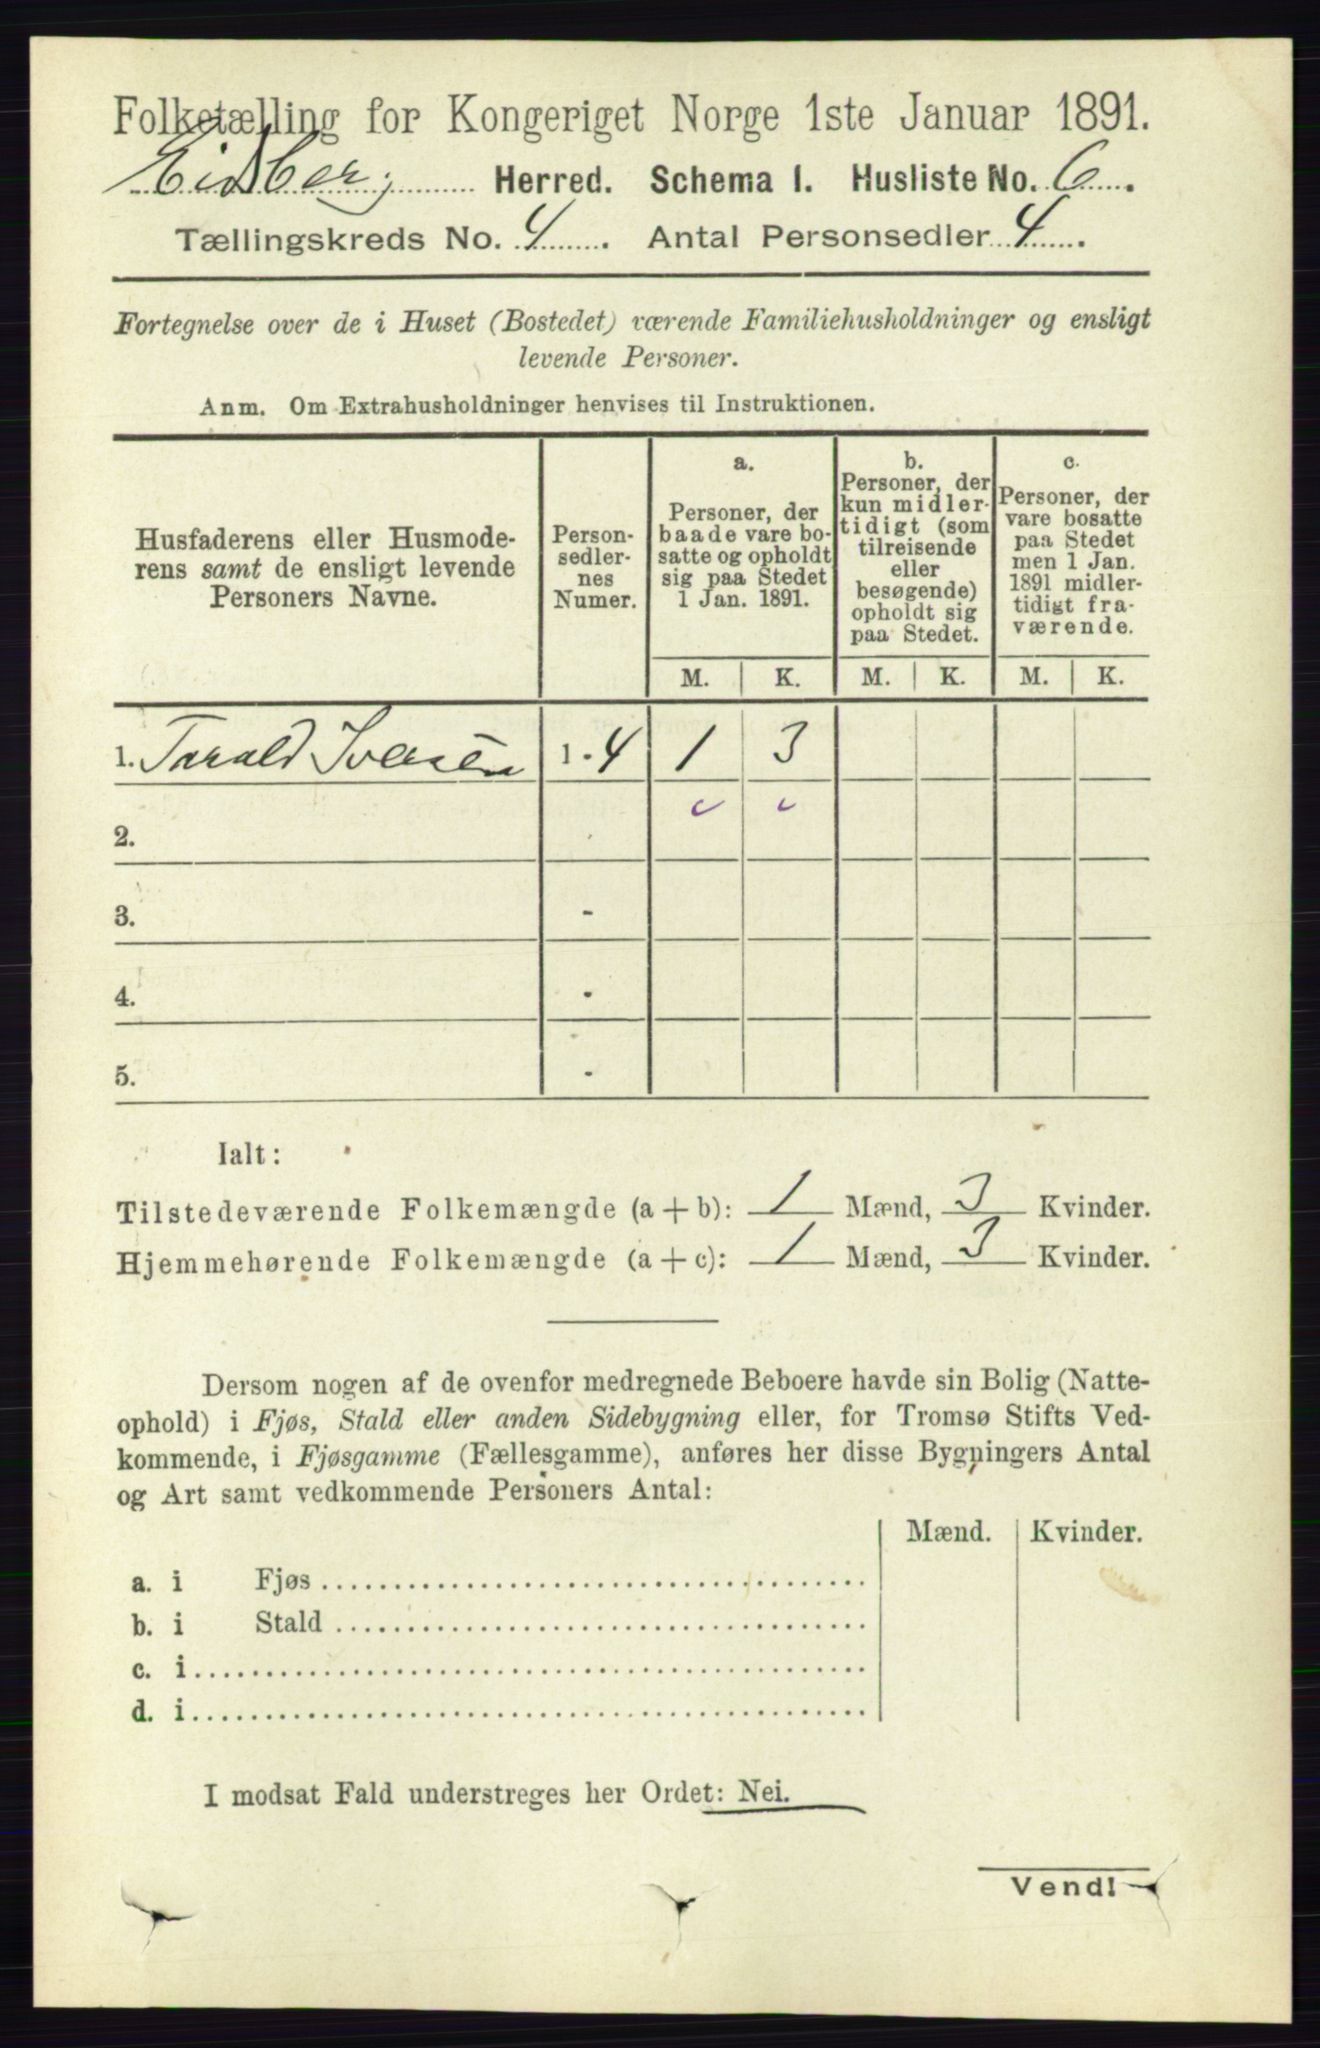 Folketælling for Kongeriget Norge 1ste Januar 1891.
Eidsberg Herred. Schema 1. Husliste No. 6.
Tællingskreds No. 4. Antal Personsedler 4.
Fortegnelse over de i Huset (Bostedet) værende Familiehusholdninger og ensligt
levende Personer.
Anm. Om Extrahusholdninger henvises til Instruktionen.
Husfaderens eller Husmode-
rens samt de ensligt levende
Personers Navne.
Person-
sedler-
nes
Numer.
a.
Personer, der
baade vare bo-
satte og opholdt
sig paa Stedet
1 Jan. 1891.
b.
Personer, der
kun midler-
tidigt (som
tilreisende
eller
besøgende)
opholdt sig
paa Stedet.
c.
Personer, der
vare bosatte
paa Stedet
men 1 Jan.
1891 midler-
tidigt fra-
værende.
M. K. M. K. M. K.
1. Tarald Iversen 1-4 1 3
2.
3. -
4. -
5. -
Ialt:
Tilstedeværende Folkemængde (a + b): 1 Mænd, 3 Kvinder.
Hjemmehørende Folkemængde (a + c): 1 Mænd, 3 Kvinder.
Dersom nogen af de ovenfor medregnede Beboere havde sin Bolig (Natte-
ophold) i Fjøs, Stald eller anden Sidebygning eller, for Tromsø Stifts Ved-
kommende, i Fjøsgamme (Fællesgamme), anføres her disse Bygningers Antal
og Art samt vedkommende Personers Antal:
Mænd. Kvinder.
a. i Fjøs
b. i Stald
c. i
d. i
I modsat Fald understreges her Ordet: Nei.
Vend!